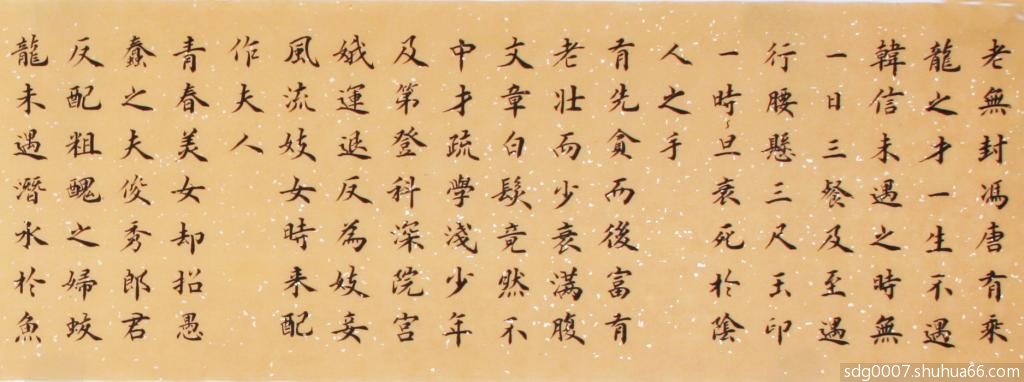 老無封馮唐有乘
龍之才一生不遇
韓信未遇之時無
一日三餐及至遇
行腰懸三尺玉印
一時旦衰死於陰
人之手
有先貪而後富有
老壯而少衰滿腹
文章白髮竟然不
中才疏學淺少年
及第登科深院宮
娥運退反為妓妾
風流妓女時来配
作夫人
青春美女却招愚
蠢之夫俊秀郎君
反配粗醜之婦蛟
龍未遇潛水於魚
sdg0007.shuhua66.com